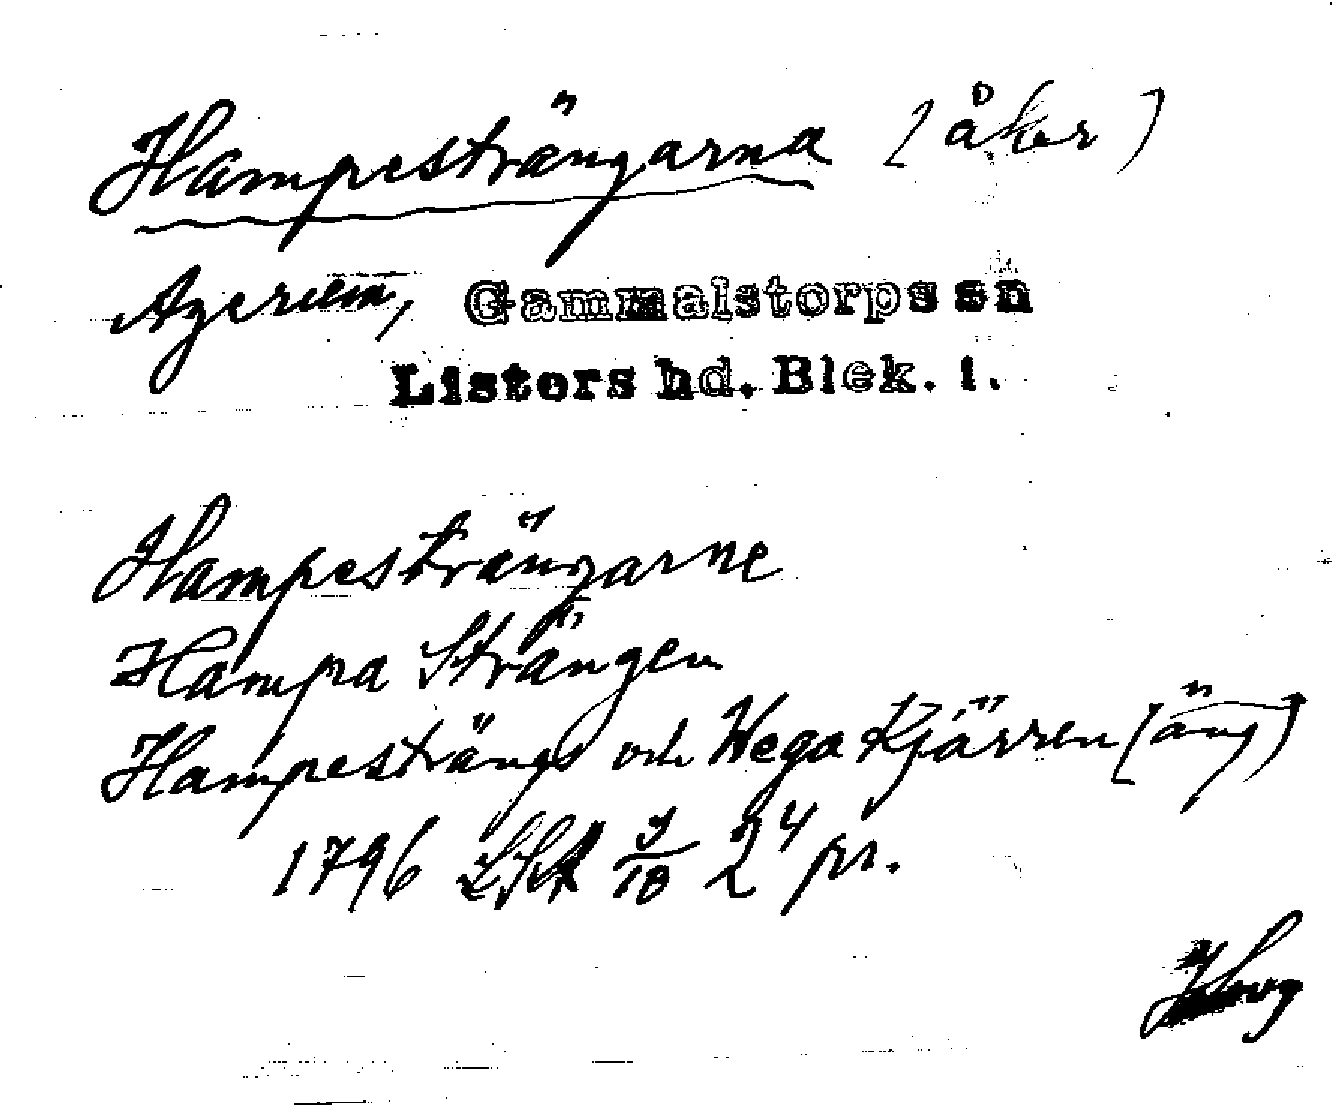 Hampesträngarna (åker)
Agerum, Gammalstorps sn
Listers hd. Blek. l.
Hampesträngarne
Hampa Strängen
Hampesträngs och Wega Kjärren (äng)
1796 LSA 2⁴ pr.